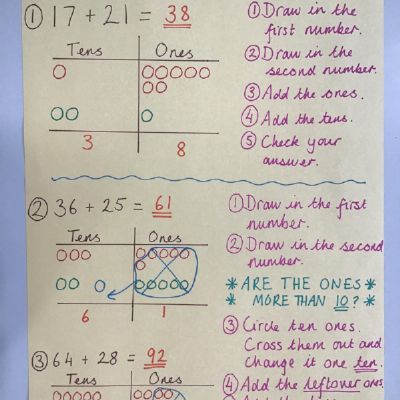 ① 17 + 21 = 38
Tens Ones
3 8
① Draw in the
first number.
② Draw in the
second number.
③ Add the ones.
④ Add the tens.
⑤ Check your
answer.
② 36 + 25 = 61
Tens Ones
6 1
① Draw in the first
number.
② Draw in the second
number.
* ARE THE ONES *
* MORE THAN 10? *
③ Circle ten ones.
Cross them out and
change it one ten.
④ Add the leftover ones.
③ 64 + 28 = 92
Tens Ones